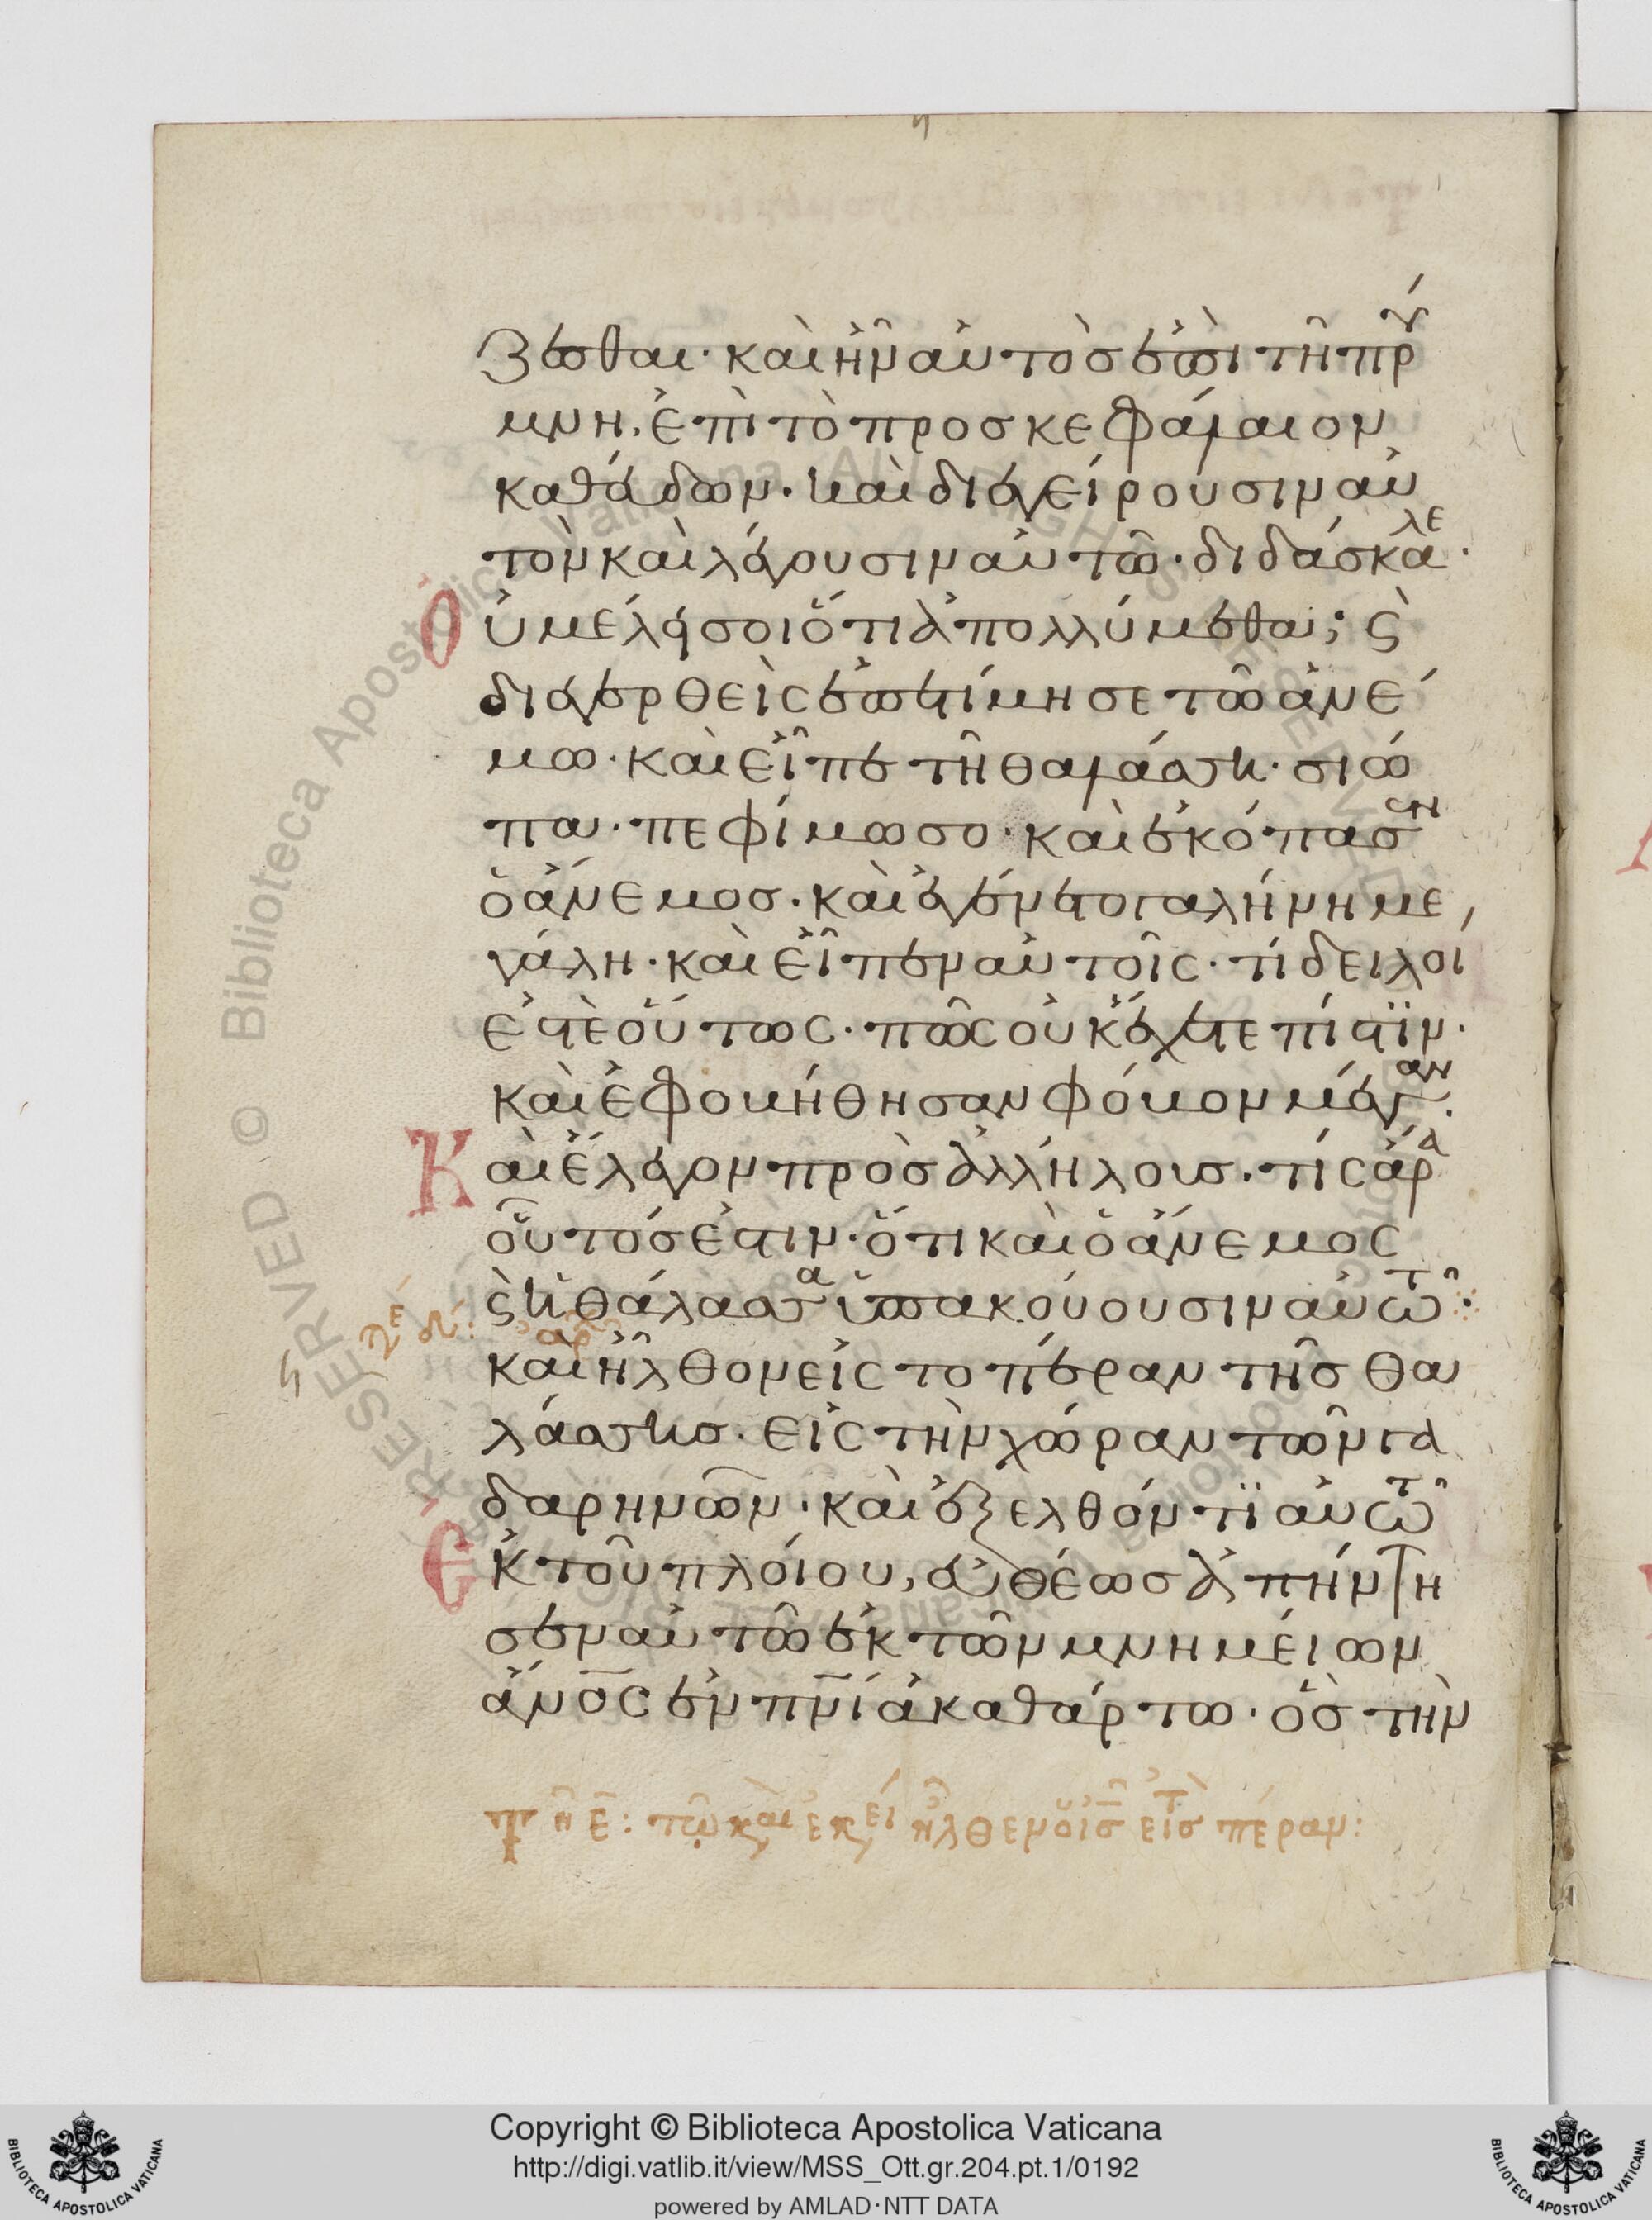 ζεσθαι· καὶ ἦν αὐτὸσ ἐπὶ τῆ πρύ
μνη, ἐπὶ τὸ προσκεφάλαιον
καθεύδων· καὶ διεγείρουσιν αὐ
τὸν καὶ λέγουσιν αὐτῶ· διδάσκαλε·
Οὐ μέλει σοι ὅτι ἀπολλύμεθα; ϛ̀
διεγερθεὶς ἐπετίμησε τῶ ἀνέ
μω· καὶ εἶπε τῆ θαλάσση· σιώ
πα· πεφίμωσο· καὶ ἐκόπασεν
ὁ ἄνεμοσ· καὶ ἐγένετο γαλήνη με
γάλη· καὶ εἶπεν αὐτοῖς· τί δειλοί
ἐστὲ οὕτως· πῶς οὐκ ἔχετε πίστϊν·
καὶ ἐφοβήθησαν φόβον μέγαν·
Καὶ ἔλεγον πρὸσ ἀλλήλουσ· τίς ἄρα
οὗτόσ ἐστιν· ὅτι καὶ ὁ ἄνεμος
ϛ̀ ἡ θάλασσα ὑπακούουσιν αὐτῶ·
καὶ ἦλθον εἰς το πέραν τῆσ θα
λάσσησ· εἰς τὴν χώραν τῶν γα
δαρηνῶν· καὶ ἐξελθόντϊ αὐτῶ
Ἐκ τοῦ πλοίου, εὐθέωσ ἀπήντη
σεν αὐτῶ ἐκ τῶν μνημείων
ἄνο̅ς ἐν πν̅ι ἀκαθάρτω· ὃσ τὴν
πέραν:
Copyright © Biblioteca Apostolica Vaticana
http://digi.vatlib.it/view/MSS_Ott.gr.204.pt.1/0192
powered by AMLAD·NTT DATA
BIBLIOTECA APOSTOLICA VATICANA
BIBLIOTECA APOSTOLICA VATICANA